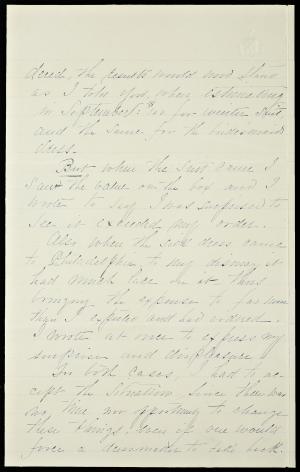 dered, the results would now stand
as I told you, when estimating
in September: for winter suit,
and the same for the bridesmaid
dress.
But when the suit came I
saw the value on the box and I
wrote to say I was surprised to
see it exceeded my order.
Also when the silk dress came
to Philadelphia to my dismay it
had much lace on it thus
bringing the expense to far more
than I expected and had ordered.
I wrote at once to express my
surprise and displeasure.
In both cases, I had to ac-
cept the situation, since there was
no time, nor opportunity to change
these things, even if one would
force a dressmaker to take back.